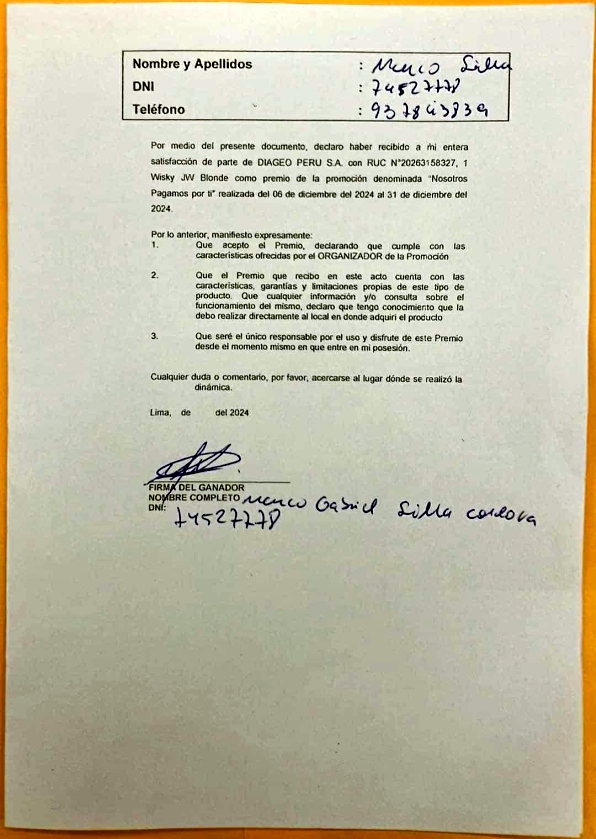 Nombre y Apellidos : Marco Silla
DNI : 74527778
Teléfono : 937843839
Por medio del presente documento, declaro haber recibido a mi entera
satisfacción de parte de DIAGEO PERU S.A. con RUC N°20263158327, 1
Wisky JW Blonde como premio de la promoción denominada "Nosotros
Pagamos por ti" realizada del 06 de diciembre del 2024 al 31 de diciembre del
2024.
Por lo anterior, manifiesto expresamente:
1. Que acepto el Premio, declarando que cumple con las
características ofrecidas por el ORGANIZADOR de la Promoción
2. Que el Premio que recibo en este acto cuenta con las
características, garantías y limitaciones propias de este tipo de
producto. Que cualquier información y/o consulta sobre el
funcionamiento del mismo, declaro que tengo conocimiento que la
debo realizar directamente al local en donde adquirí el producto
3. Que seré el único responsable por el uso y disfrute de este Premio
desde el momento mismo en que entre en mi posesión.
Cualquier duda o comentario, por favor, acercarse al lugar dónde se realizó la
dinámica.
Lima, de del 2024
FIRMA DEL GANADOR
NOMBRE COMPLETO Marco Gabriel Silla cordova
DNI: 74527778